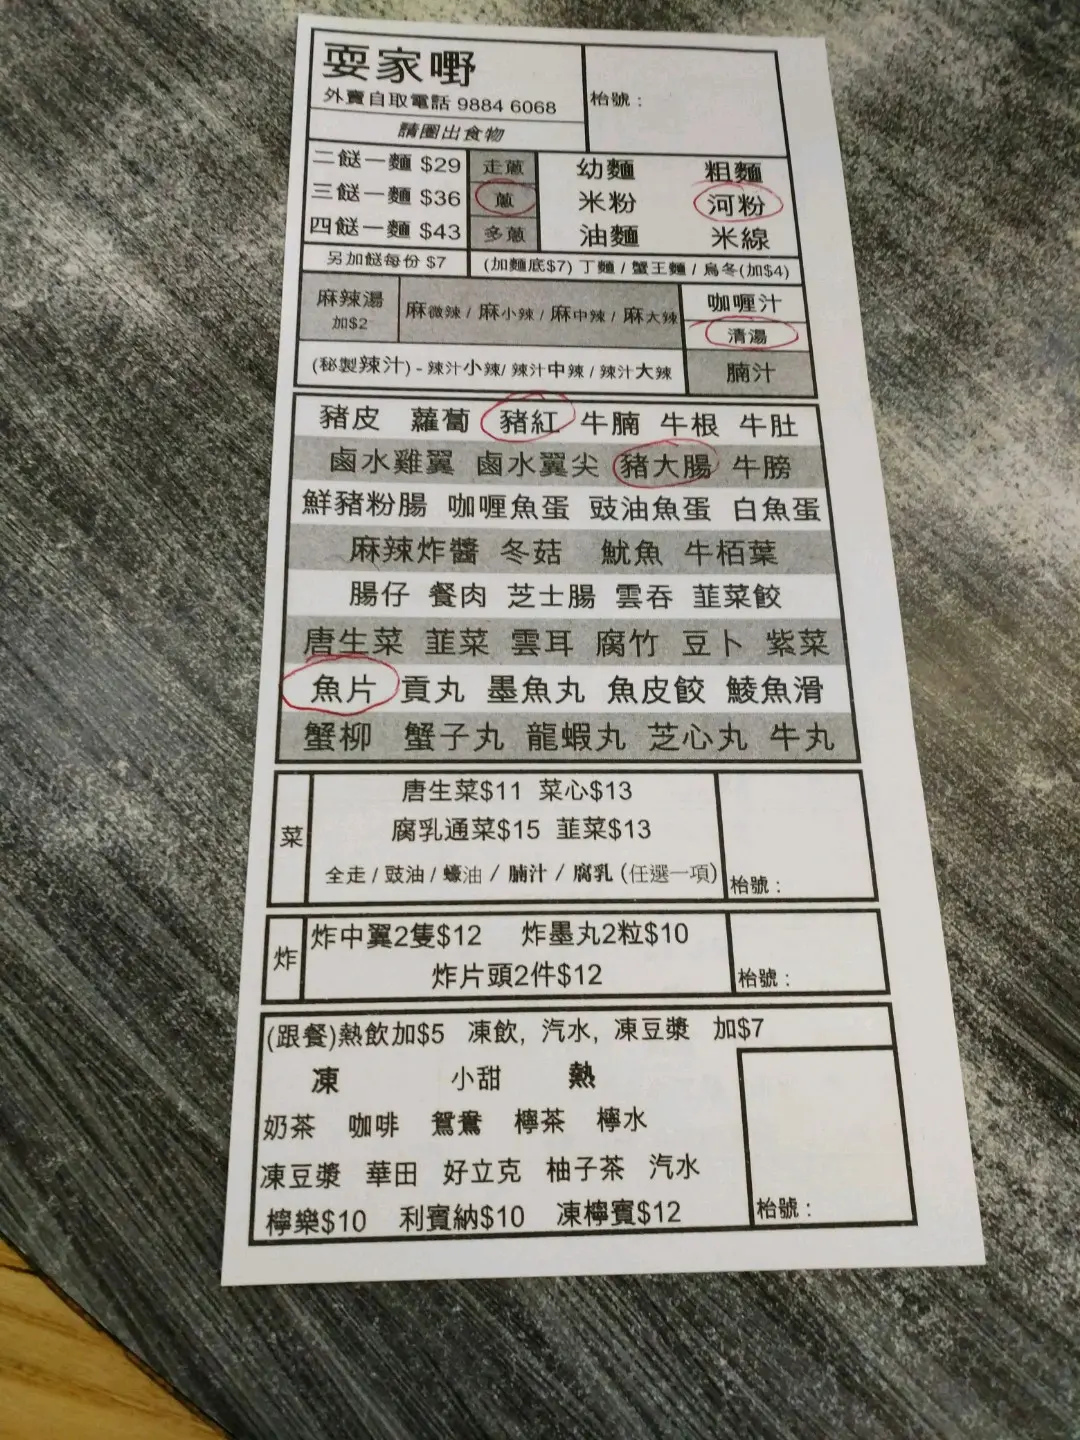 耍家嘢
外賣自取電話 9884 6068
枱號：
請圈出食物
二餸一麵 $29
三餸一麵 $36
四餸一麵 $43
走蔥
蔥
多蔥
幼麵 粗麵
米粉 河粉
油麵 米線
另加餸每份 $7
(加麵底$7) 丁麵 / 蟹王麵 / 烏冬(加$4)
麻辣湯
加$2
麻微辣 / 麻小辣 / 麻中辣 / 麻大辣
咖喱汁
清湯
腩汁
(秘製辣汁) - 辣汁小辣/ 辣汁中辣 / 辣汁大辣
豬皮 蘿蔔 豬紅 牛腩 牛根 牛肚
鹵水雞翼 鹵水翼尖 豬大腸 牛膀
鮮豬粉腸 咖喱魚蛋 豉油魚蛋 白魚蛋
麻辣炸醬 冬菇 魷魚 牛栢葉
腸仔 餐肉 芝士腸 雲吞 韮菜餃
唐生菜 韮菜 雲耳 腐竹 豆卜 紫菜
魚片 貢丸 墨魚丸 魚皮餃 鯪魚滑
蟹柳 蟹子丸 龍蝦丸 芝心丸 牛丸
菜
唐生菜$11 菜心$13
腐乳通菜$15 韮菜$13
全走 / 豉油 / 蠔油 / 腩汁 / 腐乳 (任選一項)
枱號：
炸
炸中翼2隻$12 炸墨丸2粒$10
炸片頭2件$12
枱號：
(跟餐)熱飲加$5 凍飲, 汽水, 凍豆漿 加$7
凍 小甜 熱
奶茶 咖啡 鴛鴦 檸茶 檸水
凍豆漿 華田 好立克 柚子茶 汽水
檸樂$10 利賓納$10 凍檸賓$12
枱號：